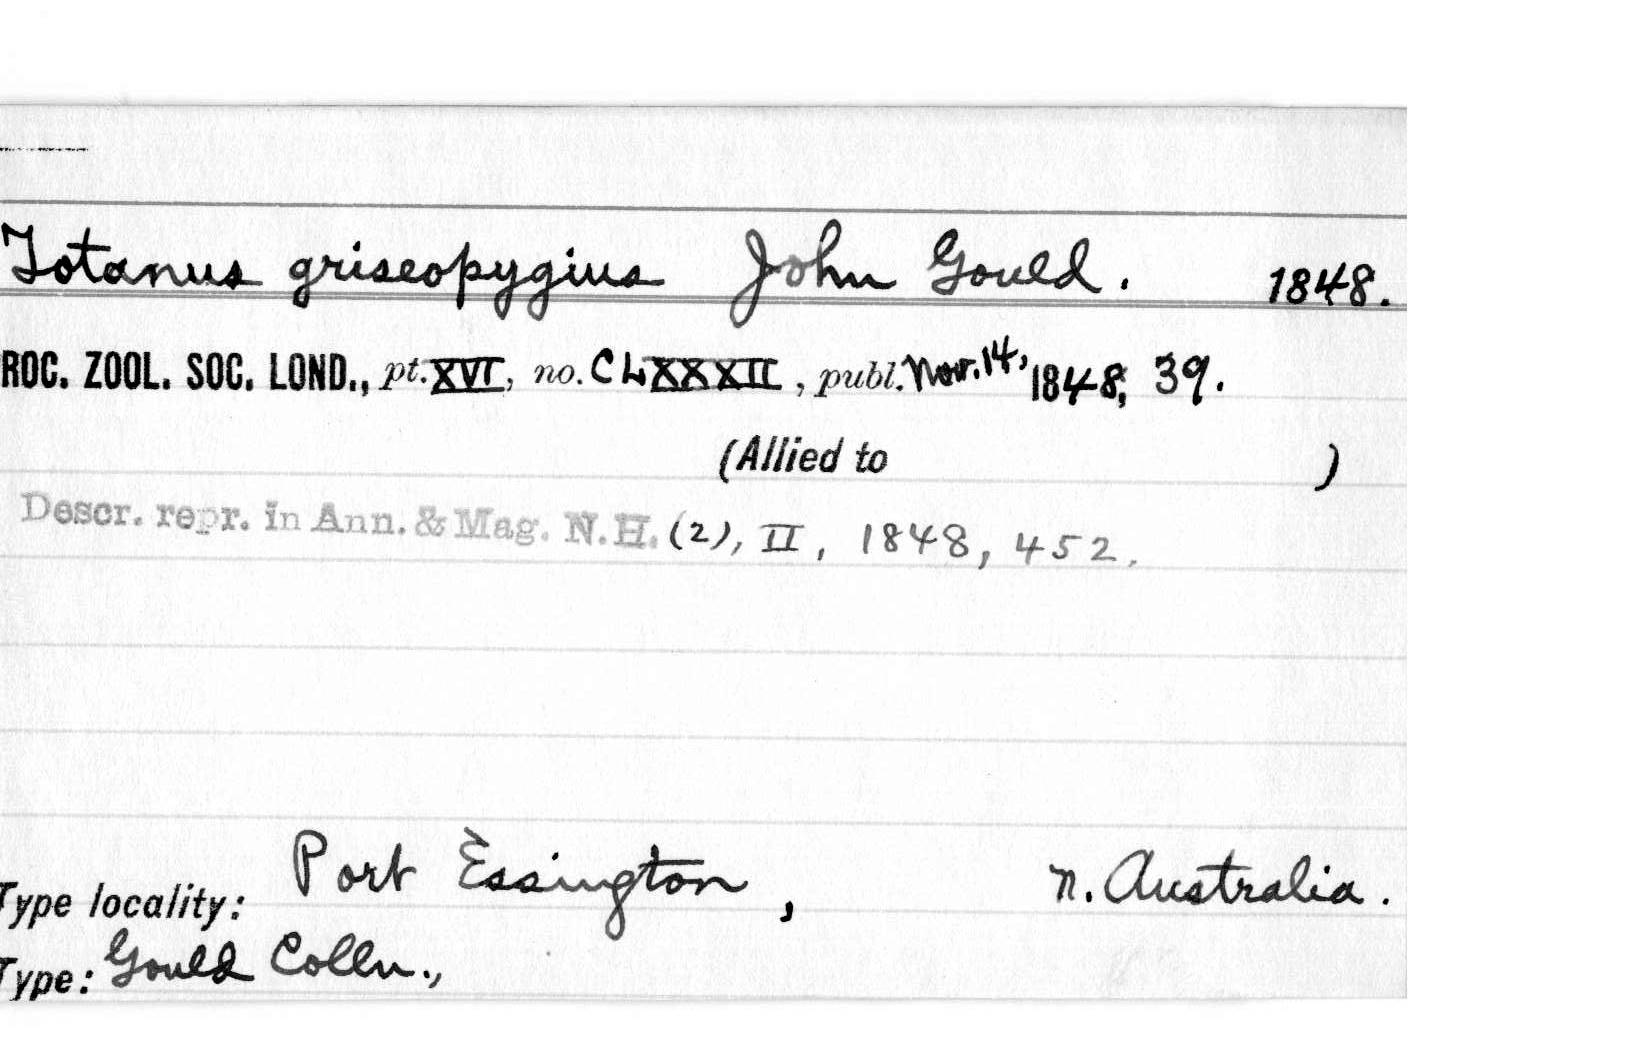 Totanus griseopygius John Gould. 1848.
ROC. ZOOL. SOC. LOND., pt. XVI, no. CLXXXII, publ. Nov. 14, 1848, 39.
(Allied to )
Descr. repr. in Ann. & Mag. N.H. (2), II, 1848, 452.
Type locality: Port Essington, n. Australia.
Type: Gould Colln.,